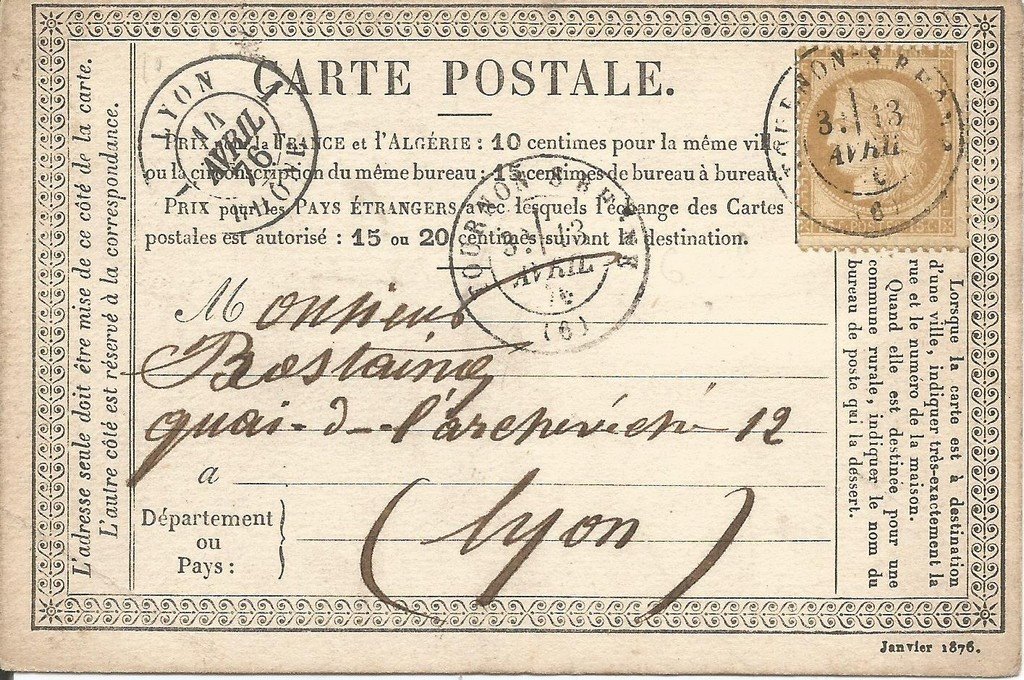 CARTE POSTALE.
PRIX pour la FRANCE et l'ALGÉRIE : 10 centimes pour la même ville
ou la circonscription du même bureau ; 15 centimes de bureau à bureau.
PRIX pour les PAYS ÉTRANGERS avec lesquels l'échange des Cartes
postales est autorisé : 15 ou 20 centimes suivant la destination.
LYON
14
AVRIL
76
TOURNON S RHONE
3E 13
AVRIL
76
(6)
TOURNON S RHONE
3E 13
AVRIL
(6)
15 POSTES 15
Monsieur
Rostaing
quai de l'archevêché 12
à
Département
ou
Pays :
(Lyon)
L'adresse seule doit être mise de ce côté de la carte.
L'autre côté est réservé à la correspondance.
Lorsque la carte est à destination
d'une ville, indiquer très-exactement la
rue et le numéro de la maison.
Quand elle est destinée pour une
commune rurale, indiquer le nom du
bureau de poste qui la dessert.
Janvier 1876.